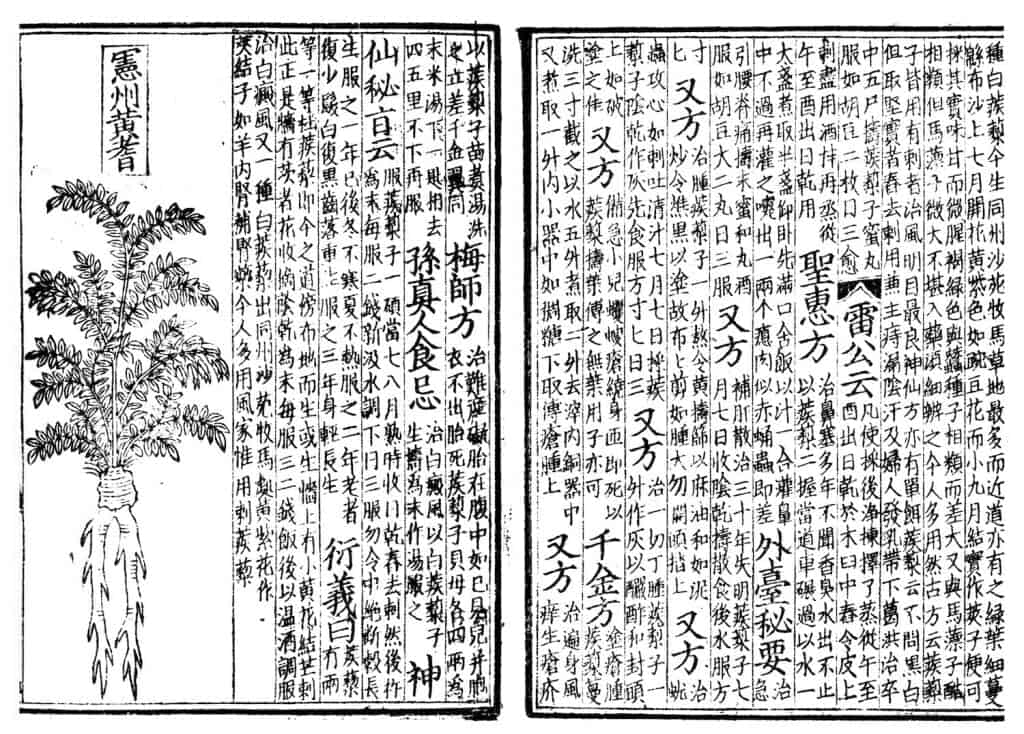 種白蒺藜今生同州沙苑牧馬草地最多而近道亦有之綠葉細蔓
緜布沙上七月開花黃紫色如豌豆花而小九月結實作莢子便可
採其實味甘而微腥褐綠色與蠶種子相類而差大又與馬薸子酷
相類但馬薸子微大不堪入藥須細辨之今人多用然古方云蒺藜
子皆用有刺者治風明目最良神仙方亦有單餌蒺藜云不問黑白
但取堅實者舂去刺用兼主痔漏陰汗及婦人發乳帶下葛洪治卒
中五尸擣蒺藜子蜜丸
服如胡豆二枚日三愈
雷公云
凡使採後淨揀擇了蒸從午至
酉出日乾於木臼中舂令皮上
刺盡用酒拌再蒸從
午至酉出日乾用
聖惠方
治鼻塞多年不聞香臭水出不止
以蒺藜二握當道車碾過以水一
大盞煮取半盞仰卧先滿口含飯以汁一合灌鼻
中不過再灌之嚏出一兩个瘜肉似赤蛹蟲即差
外臺秘要
治
急
引腰脊痛擣末蜜和丸酒
服如胡豆大二丸日三服
又方
補肝散治三十年失明蒺藜子七
月七日收陰乾擣散食後水服方
寸
匕
又方
治腫蒺藜子一升熬令黃擣篩以麻油和如泥
炒令焦黑以塗故布上剪如腫大勿開頭搨上
又方
治
蚘
蟲攻心如刺吐清汁七月七日採蒺
藜子陰乾作灰先服方寸匕日三
又方
治一切丁腫蒺藜子一
升作灰以釅酢和封頭
上如破
塗之佳
又方
備急小兒蠼螋瘡繞身匝即死以
蒺藜擣葉傅之無葉用子亦可
千金方
塗瘡腫
蒺藜蔓
洗三寸截之以水五升煮取二升去滓內銅器中
又煮取一升內小器中如稠糖下取傅瘡腫上
又方
治遍身風
痒生瘡疥
以蒺藜子苗煮湯洗
之立差千金翼同
梅師方
治難產礙胎在腹中如已見兒并胞
衣不出胎死蒺藜子貝母各四兩為
末米湯下一匙相去
四五里不下再服
孫真人食忌
治白癜風以白蒺藜子
生擣為末作湯服之
神
仙秘旨云
服蒺藜子一碩當七八月熟時收日乾舂去刺然後杵
為末每服二錢新汲水調下日三服勿令中絕斷穀長
生服之一年已後冬不寒夏不熱服之二年老者
復少髮白復黑齒落重生服之三年身輕長生
衍義曰
蒺藜
有兩
等一等杜蒺藜即今之道傍布地而生或生墻上有小黃花結芒刺
此正是墻有茨者花收摘陰乾為末每服三二錢飯後以溫酒調服
治白癜風又一種白蒺藜出同州沙苑牧馬處黃紫花作
莢結子如羊內腎補腎藥今人多用風家惟用刺蒺藜
憲州黃耆